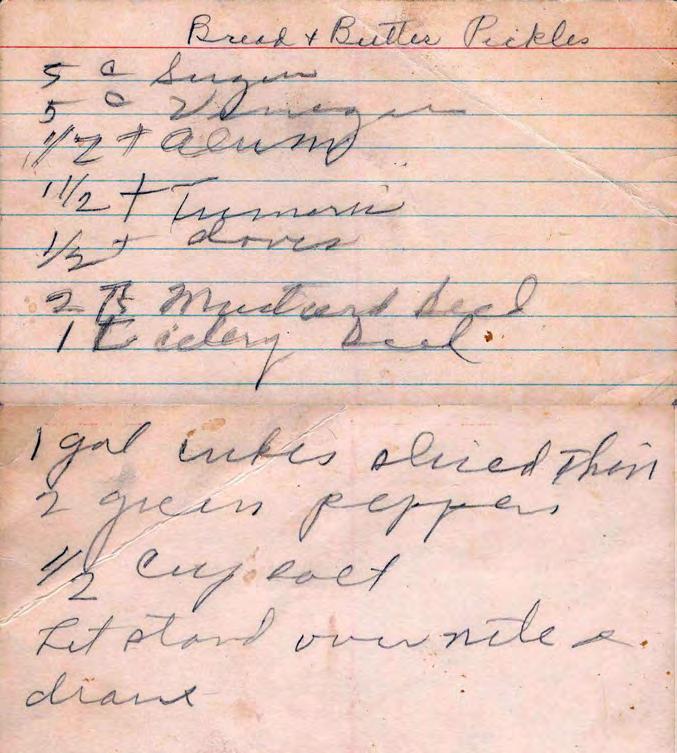 Bread + Butter Pickles
5 c Sugar
5 c Vinegar
1/2 t Alum
1 1/2 t Tumeric
1/2 t cloves
2 T Mustard Seed
1 t celery Seed
1 gal cukes sliced thin
2 green peppers
1/2 cup salt
Let stand over nite &
drain